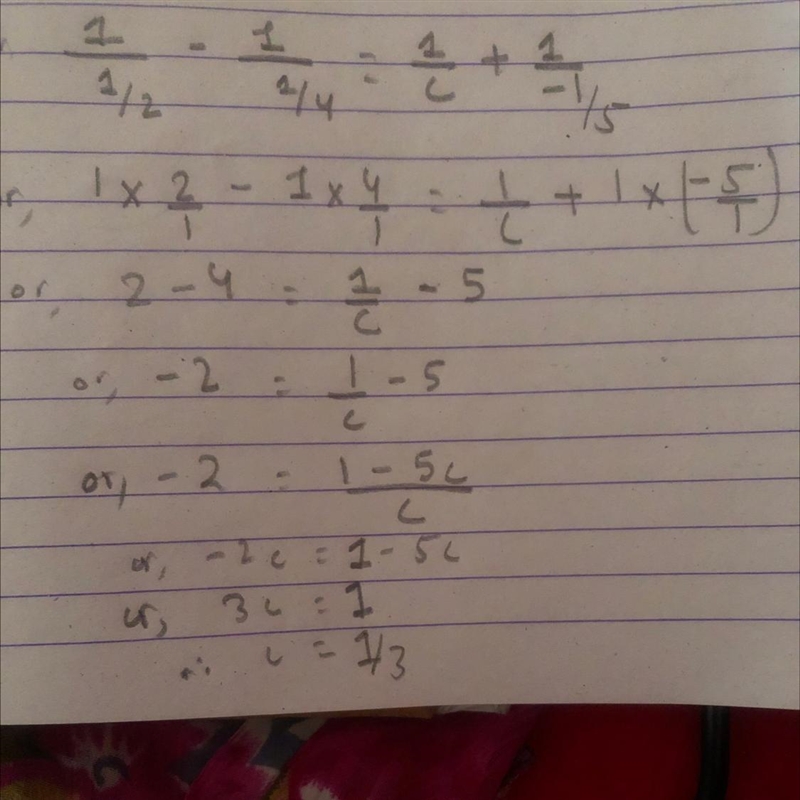 1/(1/2) - 1/(1/4) = 1/c + 1/(-1/5)
r, 1 × 2/1 - 1 × 4/1 = 1/c + 1 × (-5/1)
or, 2 - 4 = 1/c - 5
or, -2 = 1/c - 5
or, -2 = (1 - 5c)/c
or, -2c = 1 - 5c
or, 3c = 1
∴ c = 1/3